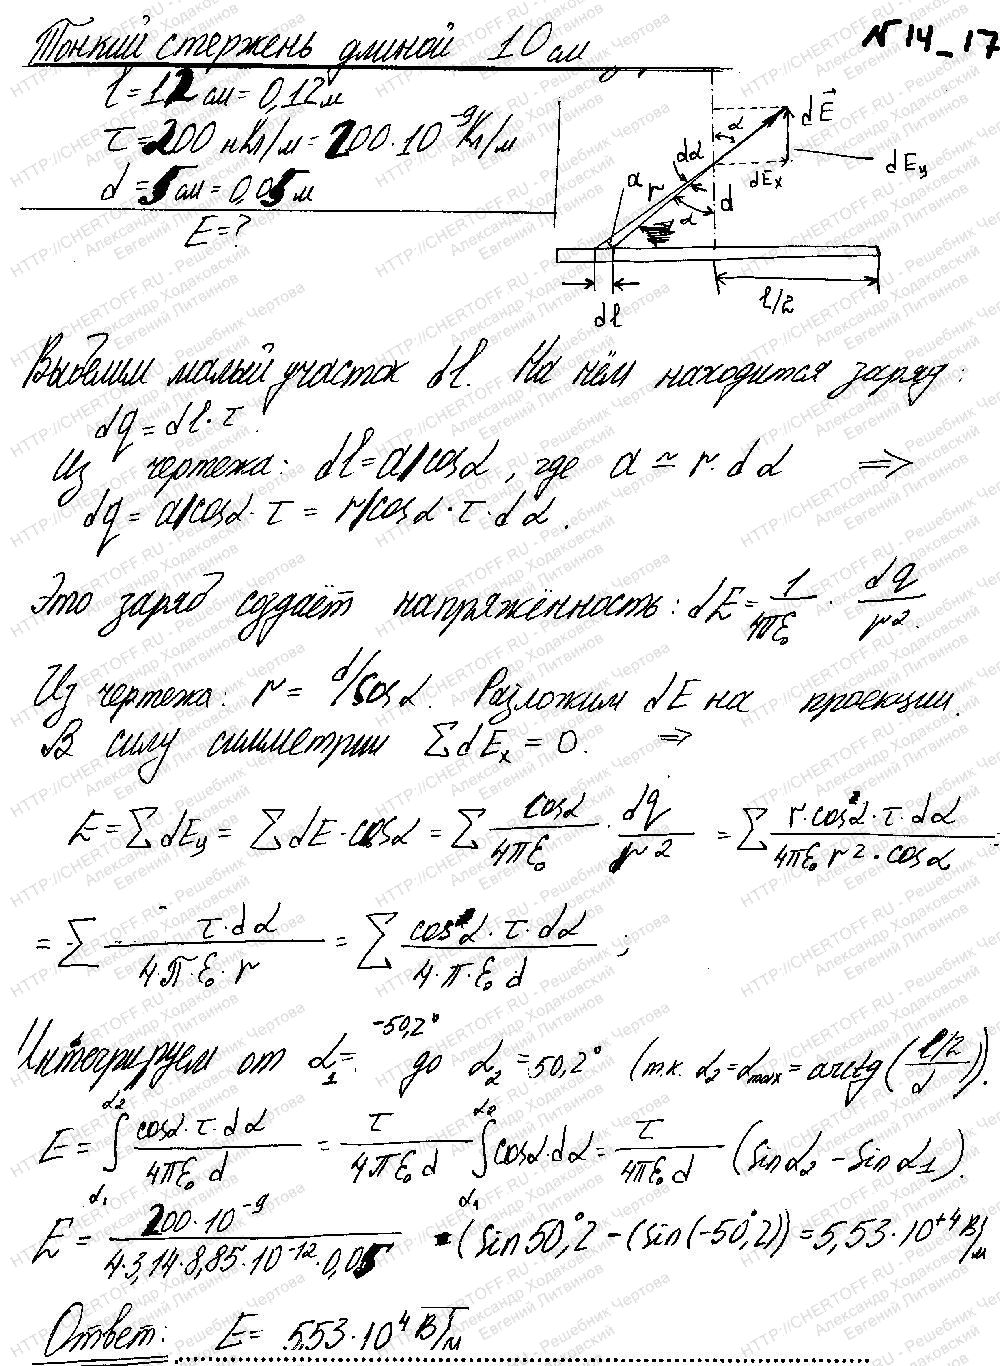 Тонкий стержень длиной 10 см
№14_17
l = 12 см = 0,12 м
τ = 200 нКл/м = 200·10⁻⁹ Кл/м
d = 5 см = 0,05 м
E = ?
dE⃗
α
dα
dE_y
a
r
dE_x
α
d
l/2
dl
Выделим малый участок dl. На нём находится заряд:
dq = dl·τ.
Из чертежа: dl = a/cosα, где a ≃ r·dα ⇒
dq = a/cosα·τ = r/cosα·τ·dα.
Это заряд создаёт напряжённость: dE = 1/(4πε₀) · dq/r².
Из чертежа: r = d/cosα. Разложим dE на проекции.
В силу симметрии ∑dE_x = 0. ⇒
E = ∑dE_y = ∑dE·cosα = ∑ cosα/(4πε₀) · dq/r² = ∑ (r·cos²α·τ·dα)/(4πε₀ r²·cosα) =
= ∑ (τ·dα)/(4·π·ε₀·r) = ∑ (cosα·τ·dα)/(4·π·ε₀ d) ;
Интегрируем от α₁ = -50,2° до α₂ = 50,2° (т.к. α₂ = α_max = arctg((l/2)/d)).
E = ∫_α₁^α₂ (cosα·τ·dα)/(4πε₀ d) = τ/(4πε₀ d) ∫_α₁^α₂ cosα·dα = τ/(4πε₀ d) (sinα₂ - sinα₁).
E = (200·10⁻⁹)/(4·3,14·8,85·10⁻¹²·0,05) · (sin50°,2 - (sin(-50°,2)) = 5,53·10⁺⁴ В/м
Ответ: E = 5,53·10⁴ В/м
HTTP://CHERTOFF.RU - Решебник Чертова
Александр Ходаковский
Евгений Литвинов